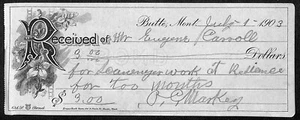 Butte, Mont. July 1 - 1903
Received of Mr Eugene Carroll
9.00 Dollars
for Scavenger work at Reliance
for two months
$ 9.00